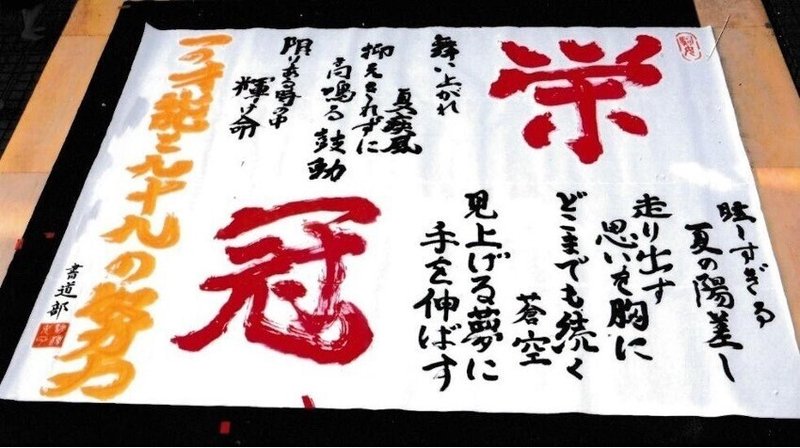 栄冠
眩しすぎる
夏の陽差し
走り出す
思いを胸に
どこまでも続く
蒼空
見上げる夢に
手を伸ばす
舞い上がれ
夏疾風
抑えきれずに
高鳴る鼓動
限りある時の中
輝け命
一の才能と九十九の努力
書道部